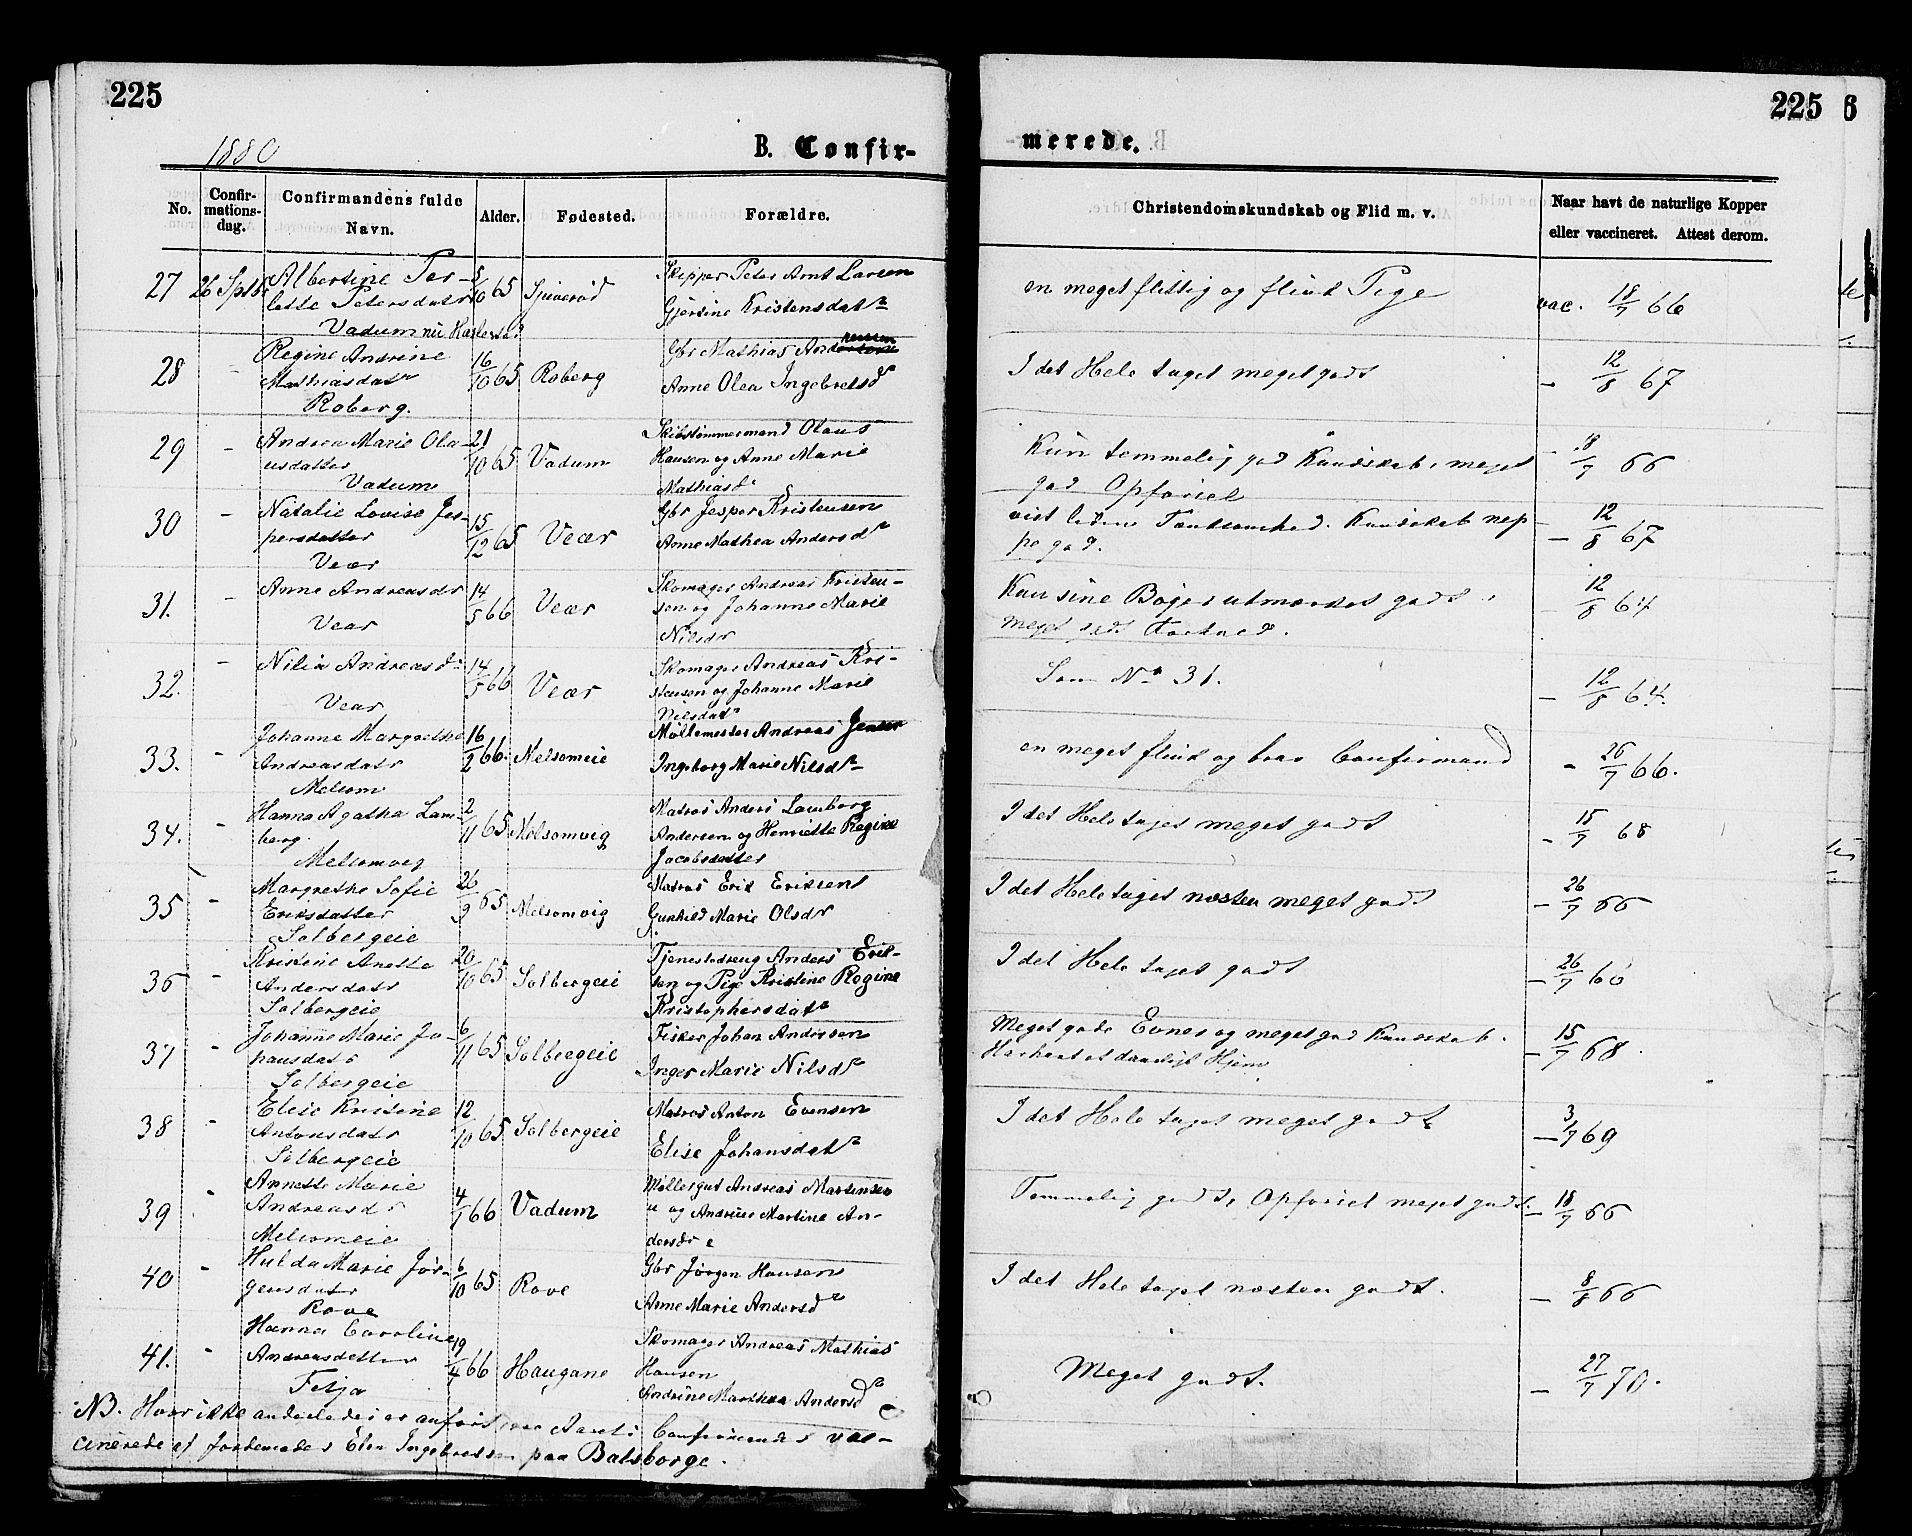 225
225 6
1880
B. Confir-
merede.
No. Confir-mations-dag. Confirmandens fulde Navn. Alder. Fødested. Forældre. Christendomskundskab og Flid m. v. Naar havt de naturlige Kopper eller vaccineret. Attest derom.
27 26 Sptb. Albertine 5/10 65 Skipper Peter Arnt Larsen en meget flittig og flink Pige vac. 18/7 66
Petersdatr Gjertine Kristensdatr
Vadum nu
28 - Regine Andrine 16/10 65 Roberg Gbr Mathias I det Hele taget meget godt - 12/8 67
Mathiasdatr Anne Olea Ingebretsdr
Roberg.
29 - Andrea Marie Ola- 21/10 65 Vadum Skibstømmermand Olaus Kun temmelig god Kundskab, meget - 18/7 66
usdatter Hansen og Anne Marie god Opførsel
Vadum Mathiasdr
30 - Natalie Lovise Jes- 15/12 65 Veær Gbr Jesper Kristensen vist liden Tænksomhed. Kundskab nep- - 12/8 67
persdatter Anne Mathea Andersdr pe god.
Veær
31. - Anne Andreasdr 14/5 66 Veær Skomager Andreas Kristen- Kan sine Bøger udmærket godt, - 12/8 67
Vear sen og Johanne Marie meget godt
Nilsdr
32. - Nilia Andreasdr 14/5 66 Veær Skomager Andreas Kri- Som No 31. - 12/8 67.
Vear stensen og Johanne Marie
Nilsdatr
33. - Johanne Margrethe 16/2 66. Melsomeie Møllemester Andreas Jensen en meget flink og brav Confirmand - 26/7 66.
Andreasdatr Ingeborg Marie Nilsdr
Melsom
34. - Hanna Agatha Lam- 2/11 65 Melsomvig Matros Anders Lamberg I det Hele taget meget godt - 15/7 68
berg. Andersen og Henriette Regine
Melsomvig Jacobsdatter
35 - Margrethe Sofie 26/9 65 Melsomvig Matros Erik Eriksen I det Hele taget næsten meget godt - 26/7 66
Eriksdatter Gunhild Marie Olsdr
Solbergeie
36 - Kristine Anette 20/10 65 Solbergeie Tjenestedreng Anders Erik- I det Hele taget godt - 26/7 66
Andersdatr sen og Pige Kristine Regine
Solbergeie Kristophersdatr
37 - Johanne Marie Jo- 6/11 65 Solbergeie Fisker Johan Andersen Meget gode Evner og meget god Kundskab. - 15/7 68.
hansdatr Inger Marie Nilsdr Har havt et daarligt Hjem
Solbergeie
38 - Elise Kristine 12/10 65 Solbergeie Matros Anton Evensen I det Hele taget meget godt - 3/7 69
Antonsdatr Elise Johansdatr
Solbergeie
39 - Annette Marie 4/1 66 Vadum Møllergut Andreas Martinsen Temmelig godt, Opførsel meget godt. - 18/7 66
Andreasdr og Andrine Martine An-
Melsomeie dersdr
40 - Hulda Marie Jør- 6/10 65 Rove Gbr Jørgen Hansen I det Hele taget næsten godt. - 8/8 66
gensdatr Anne Marie Andersdr
Rove
41. - Hanna Caroline 19/4 66 Haugane Skomager Andreas Mathias Meget godt. - 27/7 70.
Andreasdatter Hansen
Andrine Marthea Andersdr
NB. Hvor ikke anderledes er anført, ere Aarets Confirmander vac-
cinerede af Jordemoder Elen Ingebretsen paa Balsborge.